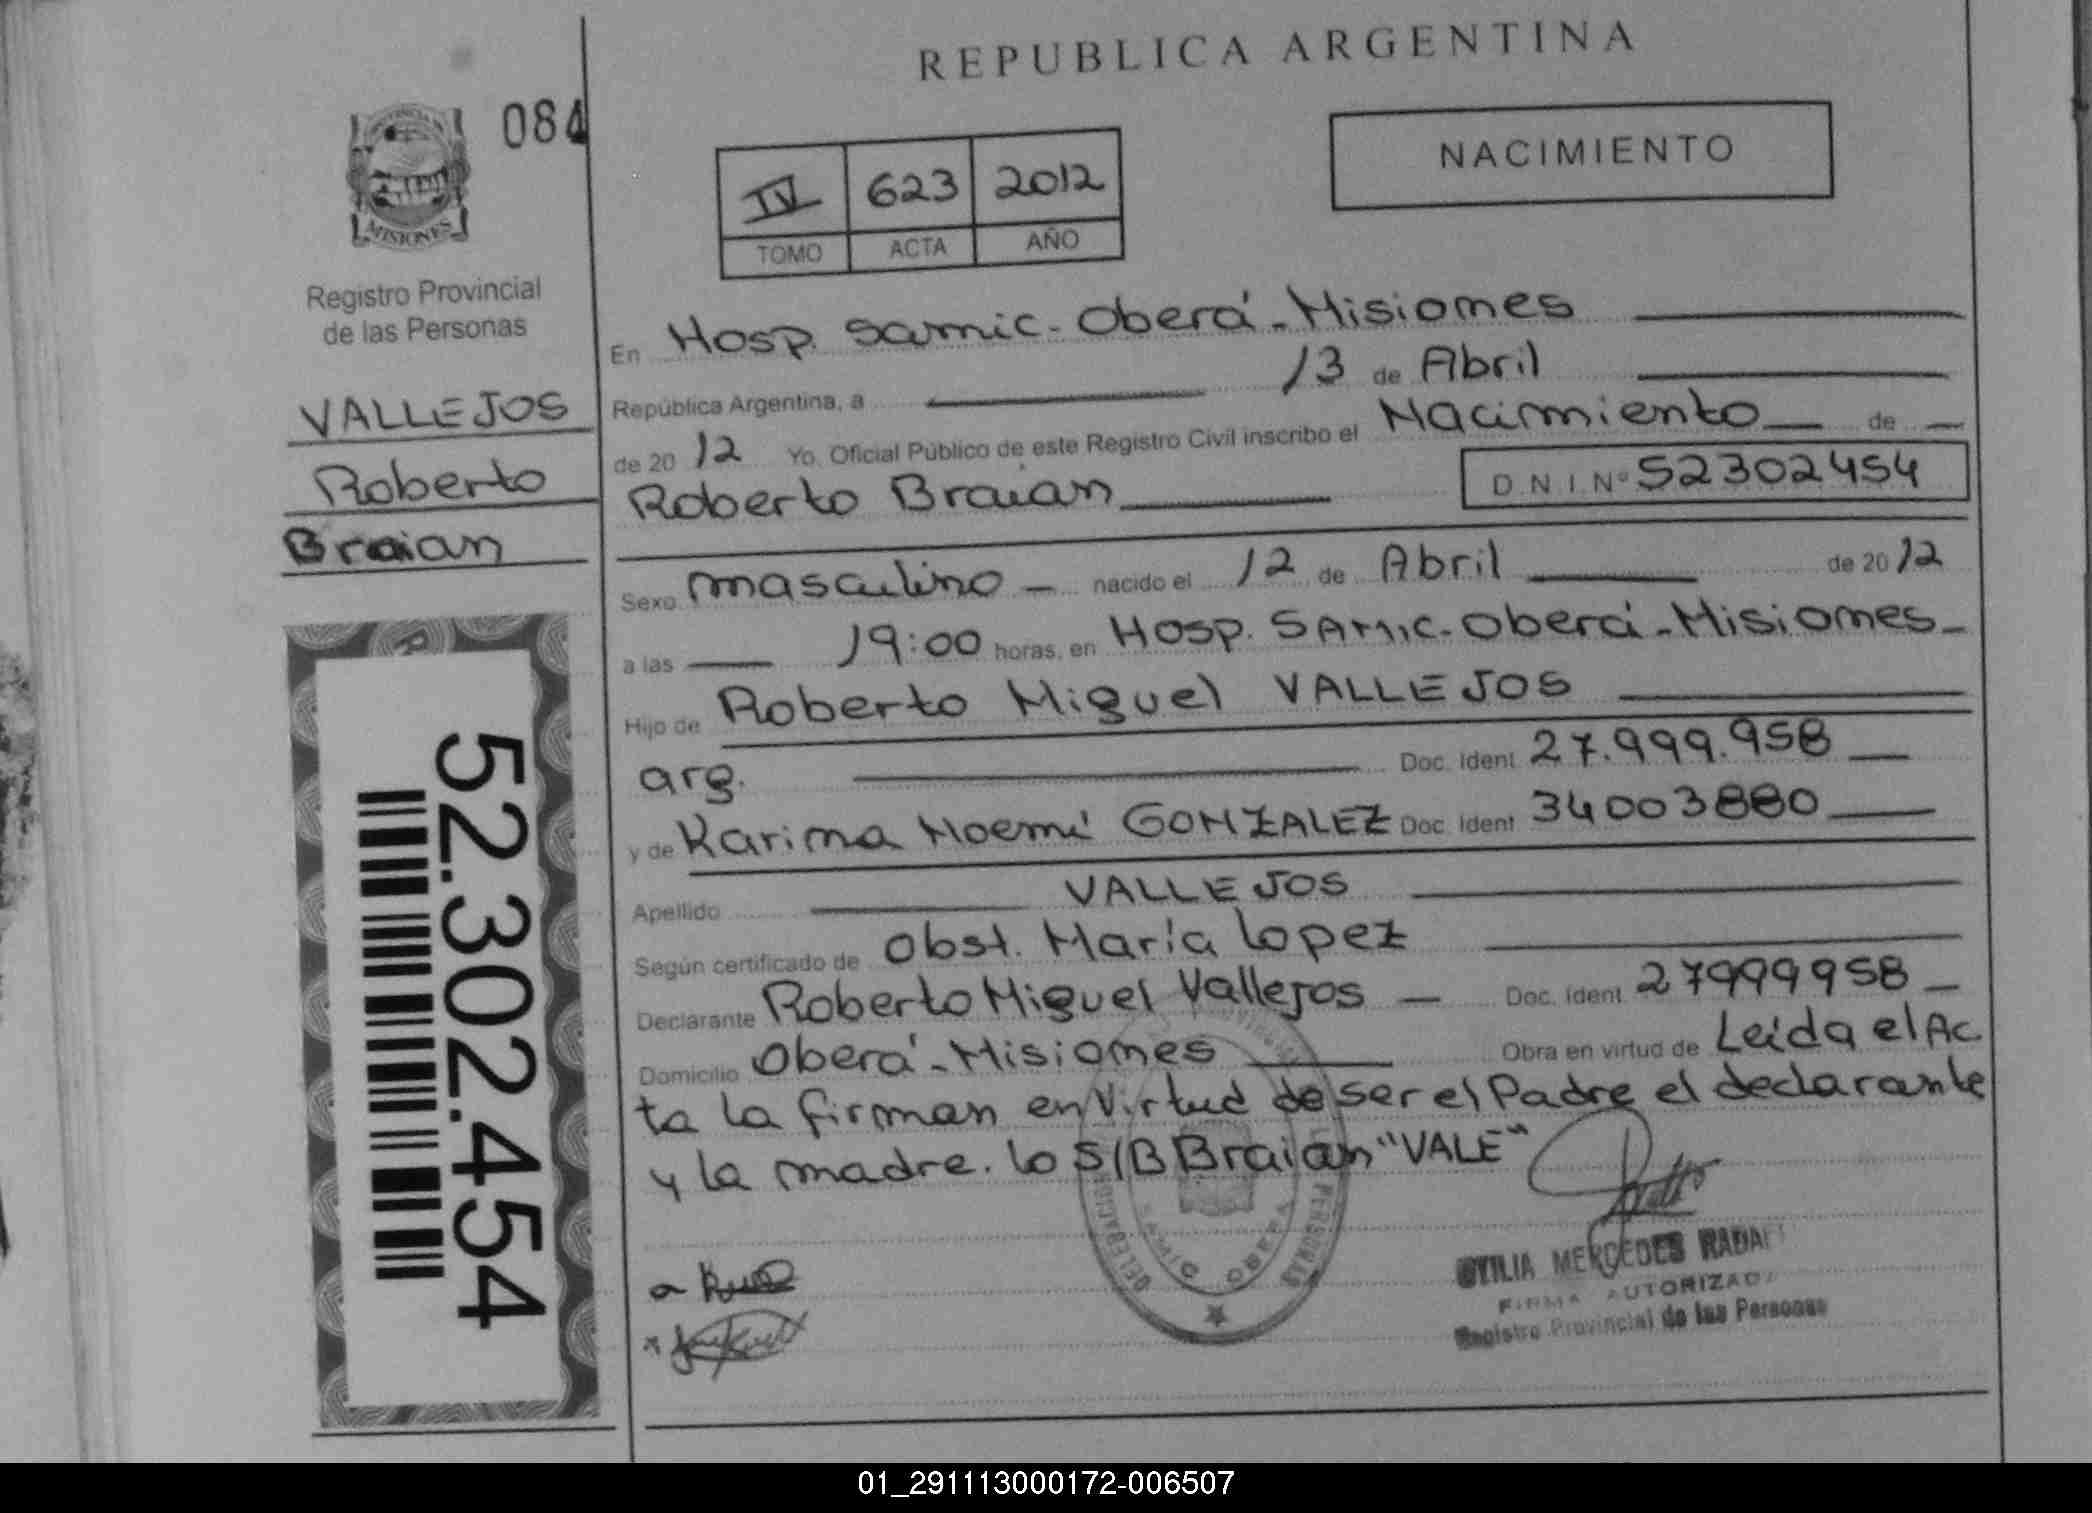 REPUBLICA ARGENTINA
084
NACIMIENTO
IV 623 2012
TOMO ACTA AÑO
MISIONES
Registro Provincial
de las Personas
VALLEJOS
Roberto
Braian
52.302.454
En Hosp. Samic - Oberá - Misiones
República Argentina, a 13 de Abril
de 2012 Yo, Oficial Público de este Registro Civil inscribo el Nacimiento de
Roberto Braian D.N.I.Nº 52302454
Sexo masculino nacido el 12 de Abril de 2012
a las 19:00 horas, en Hosp. SAMIC - Oberá - Misiones
Hijo de Roberto Miguel VALLEJOS
arg. Doc. Ident 27.999.958
y de Karina Noemí GONZALEZ Doc. Ident 34003880
Apellido VALLEJOS
Según certificado de Obst. María Lopez
Declarante Roberto Miguel Vallejos Doc. Ident 27999958
Domicilio Oberá - Misiones Obra en virtud de Leida el Ac
ta la firman en virtud de ser el Padre el declarante
y la madre. lo S/B Braian "VALE"
OTILIA MERCEDES
FIRMA AUTORIZADA
Registro Provincial de las Personas
01_291113000172-006507